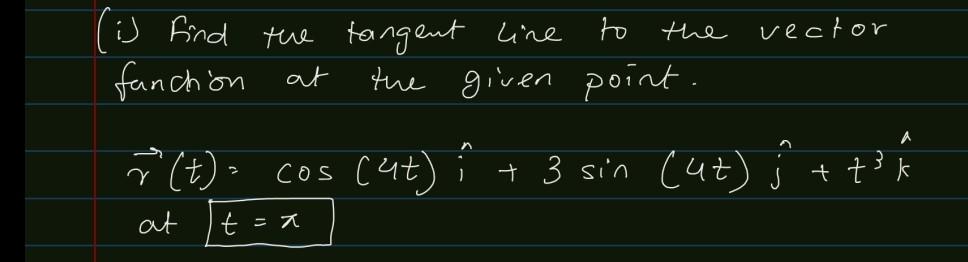 (i) Find the tangent line to the vector
function at the given point.
r⃗(t) = cos (4t) î + 3 sin (4t) ĵ + t³ k̂
at t = π